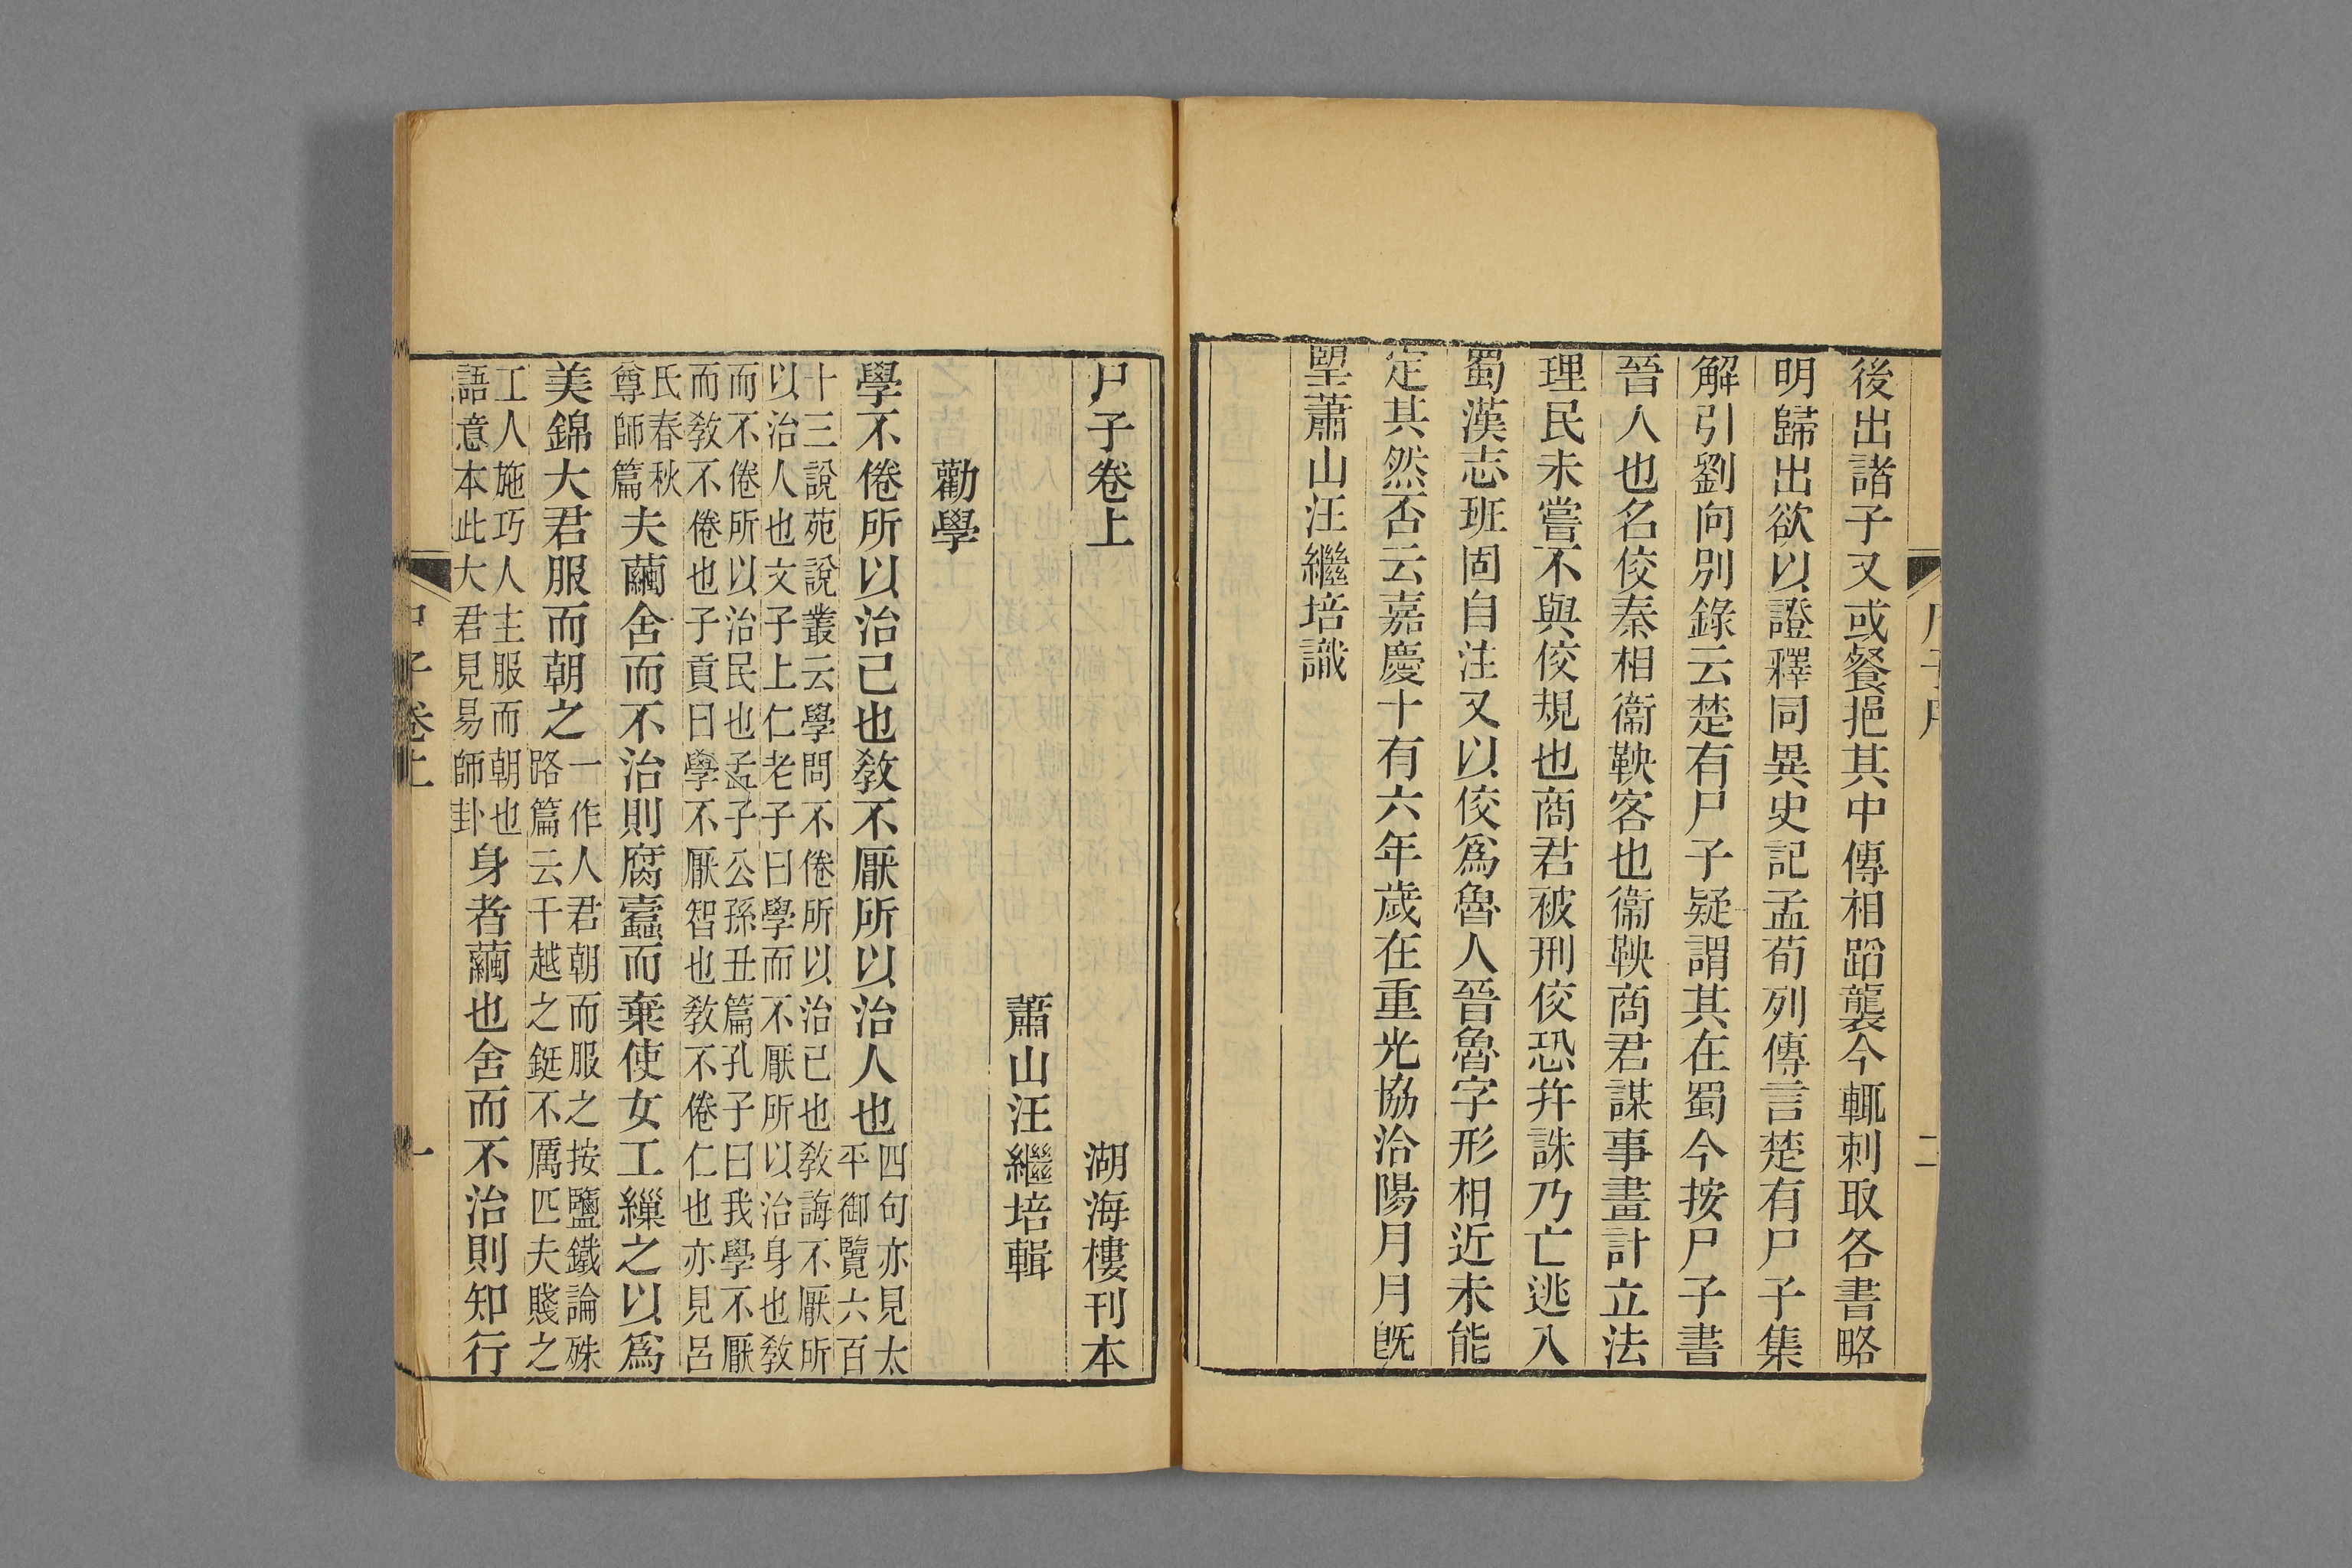 後出諸子又或餐挹其中傳相蹈襲今輒刺取各書略
明歸出欲以證釋同異史記孟荀列傳言楚有尸子集
解引劉向別錄云楚有尸子疑謂其在蜀今按尸子書
晉人也名佼秦相衞鞅客也衞鞅商君謀事畫計立法
理民未嘗不與佼規也商君被刑佼恐并誅乃亡逃入
蜀漢志班固自注又以佼爲魯人晉魯字形相近未能
定其然否云嘉慶十有六年歲在重光協洽陽月月旣
朢蕭山汪繼培識
尸子卷上 湖海樓刊本
蕭山汪繼培輯
勸學
學不倦所以治己也敎不厭所以治人也四句亦見太
平御覽六百
十三說苑說叢云學問不倦所以治己也敎誨不厭所
以治人也文子上仁老子曰學而不厭所以治身也敎
而不倦所以治民也孟子公孫丑篇孔子曰我學不厭
而敎不倦也子貢曰學不厭智也敎不倦仁也亦見呂
氏春秋
尊師篇
夫繭舍而不治則腐蠹而棄使女工繅之以爲
美錦大君服而朝之
一作人君朝而服之按鹽鐵論殊
路篇云干越之鋌不厲匹夫賤之
工人施巧人主服而朝也
語意本此大君見易師卦
身者繭也舍而不治則知行
尸子卷上 一
二